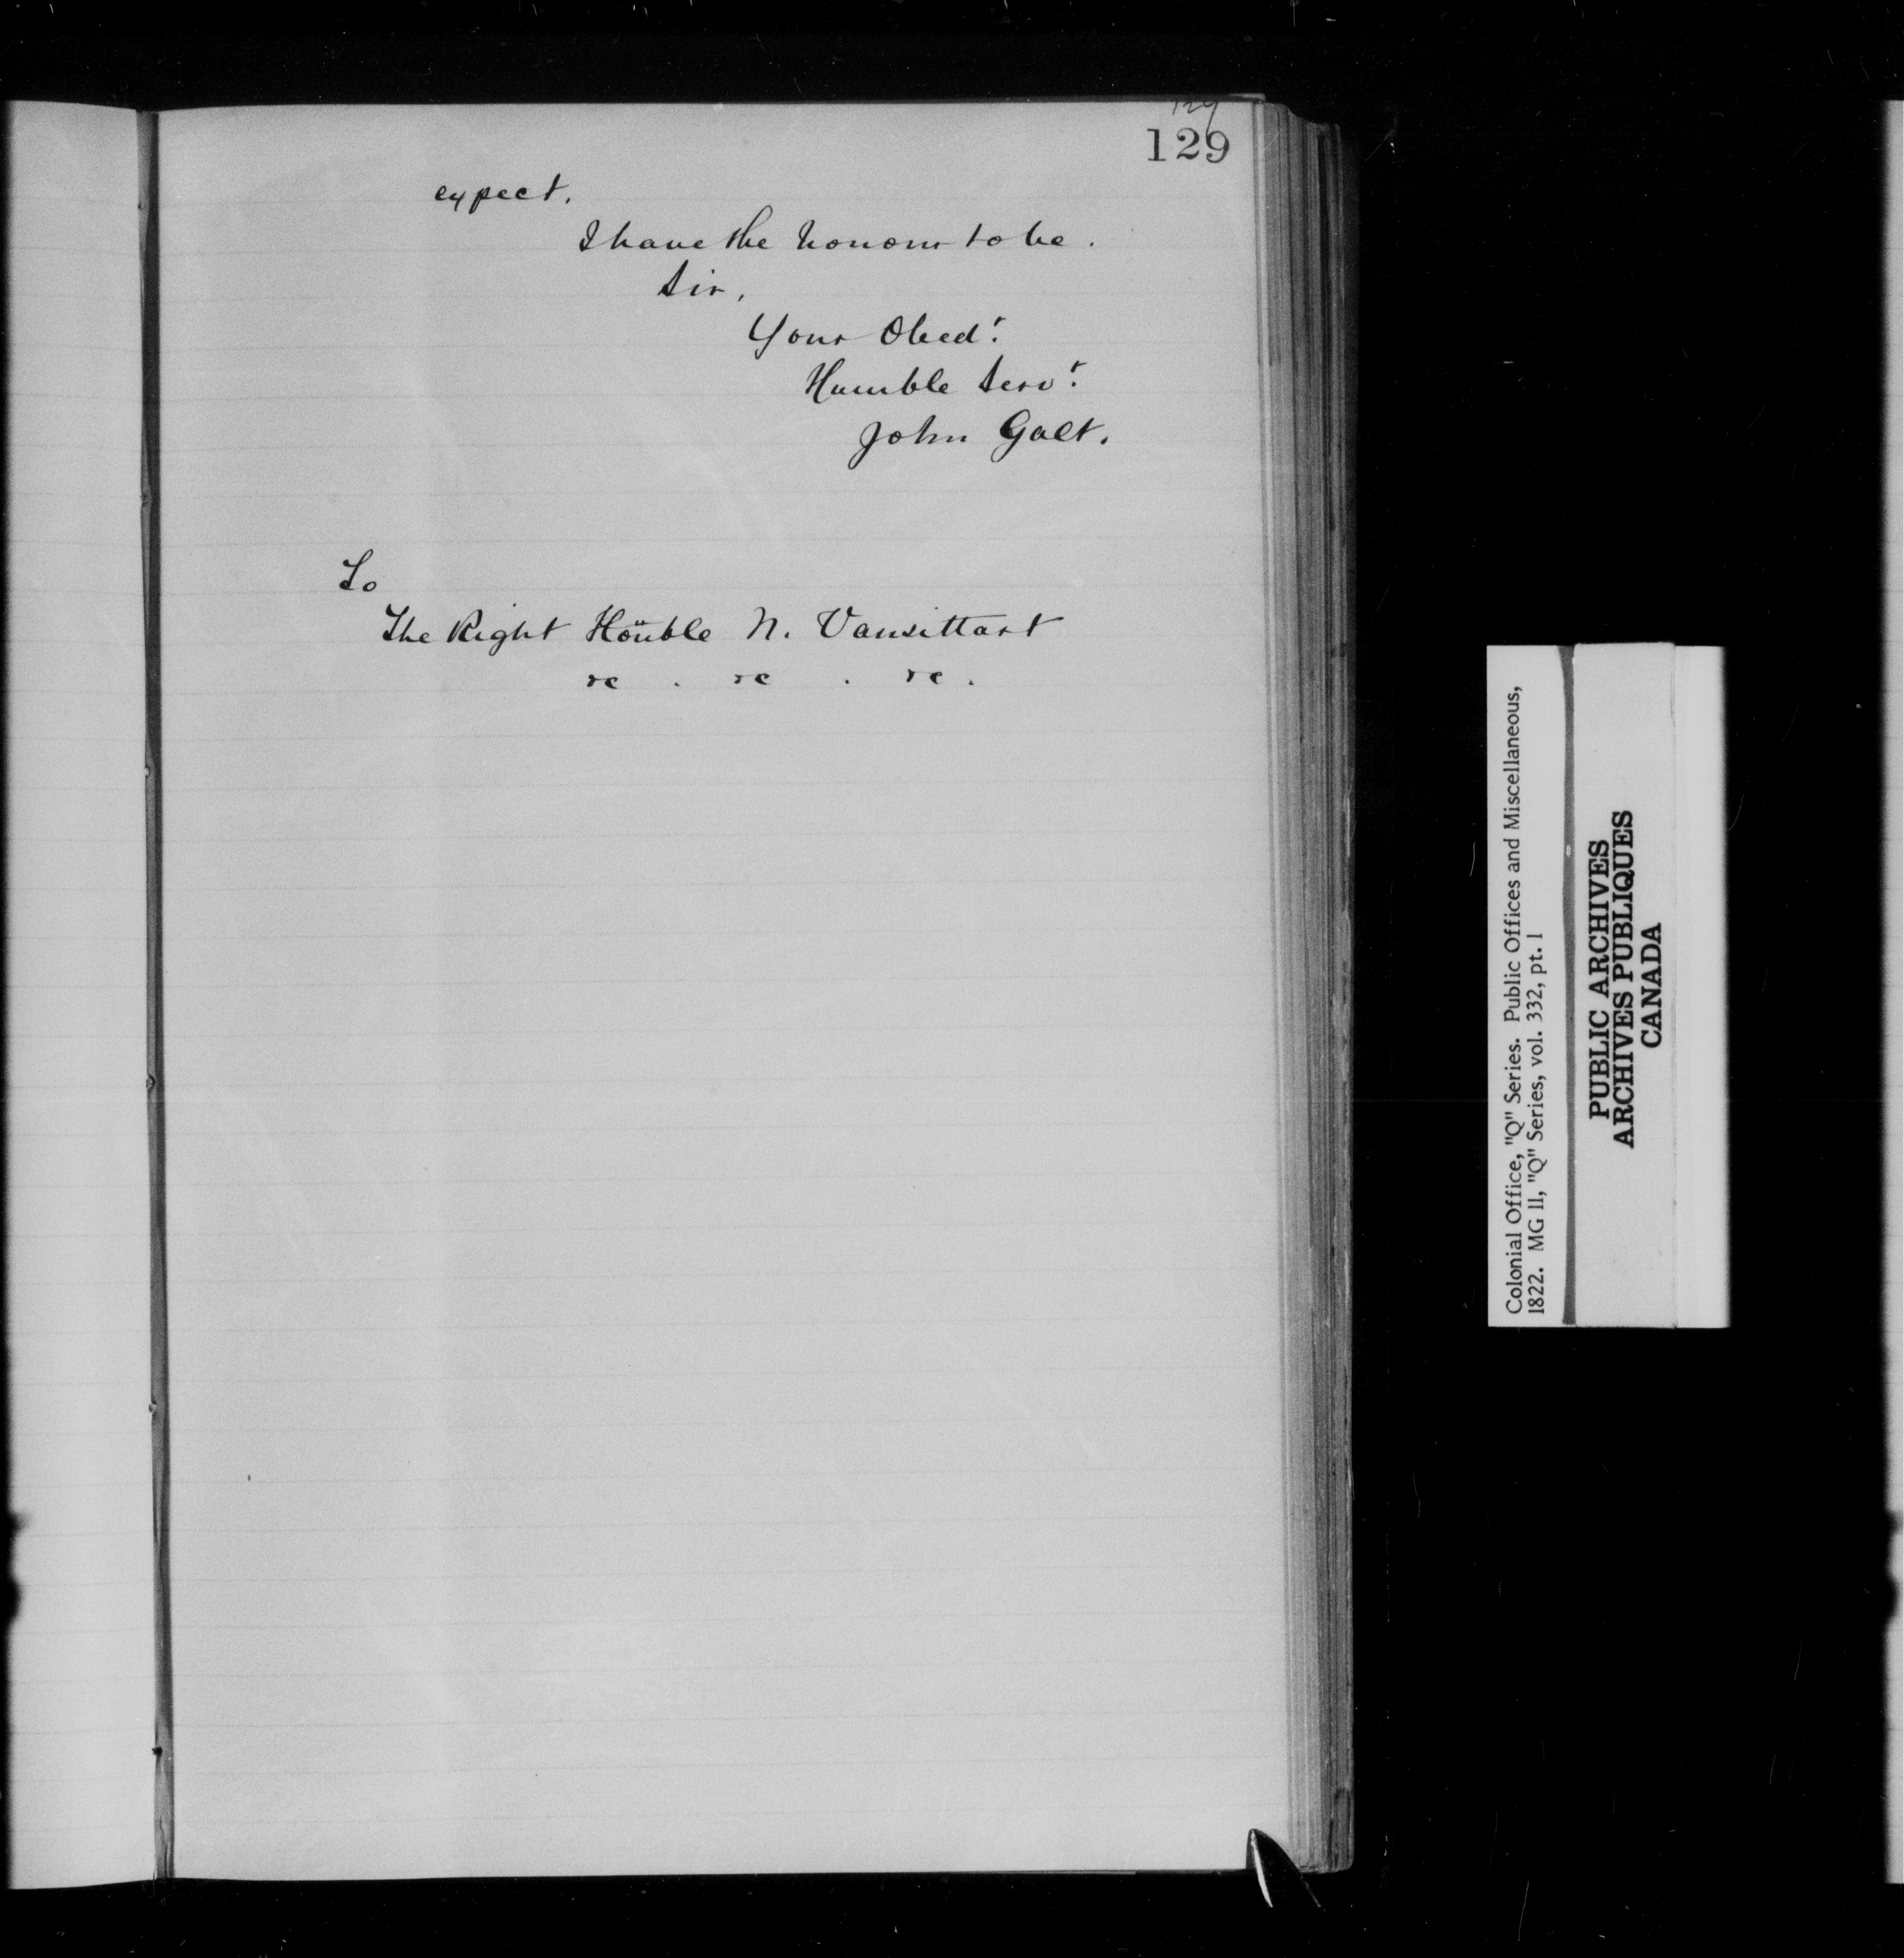 129
129
expect.
I have the honour to be.
Sir,
Your Obedt.
Humble Servt.
John Galt.
To
The Right Honble N. Vansittart
&c . &c . &c .
Colonial Office, "Q" Series. Public Offices and Miscellaneous,
1822. MG 11, "Q" Series, vol. 332, pt. 1
PUBLIC ARCHIVES
ARCHIVES PUBLIQUES
CANADA